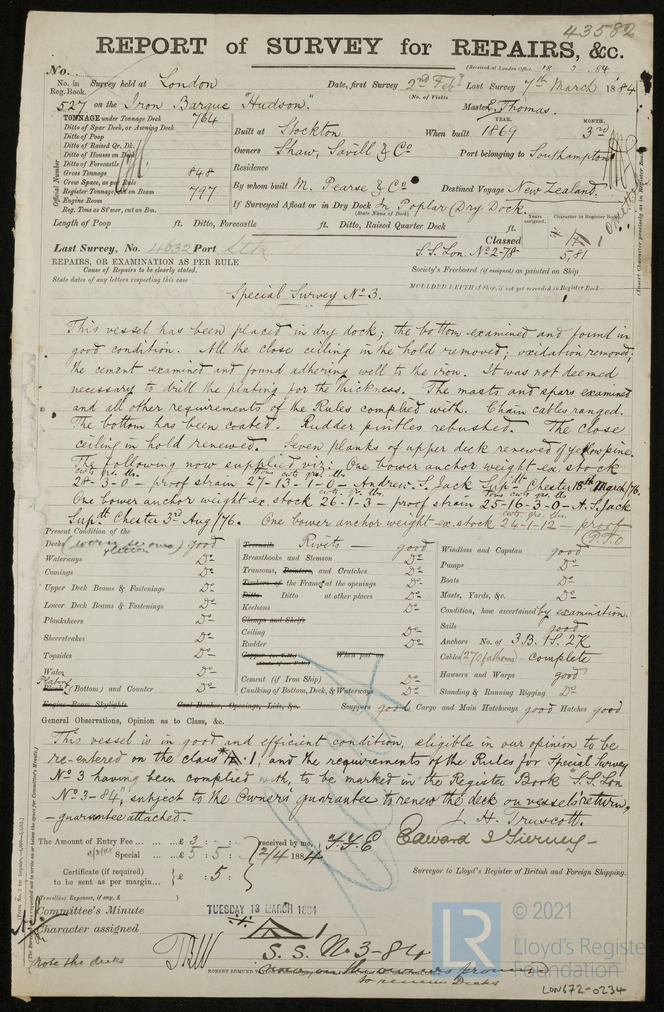 43582
REPORT of SURVEY for REPAIRS, &c.
(Received at London Office, 18 3 84
No.
No. in Reg. Book. Survey held at London Date, first Survey 2nd Feby Last Survey 7th March 1884
(No. of Visits
527 on the Iron Barque "Hudson." Master Thomas.
TONNAGE under Tonnage Deck 764
Ditto of Spar Deck, or Awning Deck
Ditto of Poop
Ditto of Raised Qr. Dk.
Ditto of Houses on Deck
Ditto of Forecastle
Gross Tonnage 848
Crew Space, as per Rule
Register Tonnage, as on Beam 797
Engine Room
Reg. Tons as St'mer, cut on Bm.
Official Number
Built at Stockton When built YEAR. 1869 MONTH. 3rd
Owners Shaw, Savill & Co Port belonging to Southampton
Residence
By whom built M. Pearse & Co Destined Voyage New Zealand.
If Surveyed Afloat or in Dry Dock In Poplar Dry Dock
(State Name of Dock)
Years assigned. Character in Register Book
(Insert Character precisely as in Register Book)
Length of Poop ft. Ditto, Forecastle ft. Ditto, Raised Quarter Deck ft.
Classed
5,81
Last Survey, No. 4632 Port Stk
S.S. Lon. No 2-78
REPAIRS, OR EXAMINATION AS PER RULE
Cause of Repairs to be clearly stated.
State dates of any letters respecting this case
Society's Freeboard (if assigned) as painted on Ship
MOULDED DEPTH of Ship, if not yet recorded in Register Book
Special Survey No 3.
This vessel has been placed in dry dock; the bottom examined and found in
good condition. All the close ceiling in the hold removed; oxidation removed;
the cement examined and found adhering well to the iron. It was not deemed
necessary to drill the plating for the thickness. The masts and spars examined
and all other requirements of the Rules complied with. Chain cables ranged.
The bottom has been coated. Rudder pintles rebushed. The close
ceiling in hold renewed. Seven planks of upper deck renewed of yellow pine.
The following now supplied viz: One bower anchor weight ex. stock
cwts qrs. lbs. tons cwts qrs. lbs
28-3-0 - proof strain 27-13-1-0 - Andrew S. Jack Supdtt Chester 18th March/76.
cwts qrs. lbs. tons cwts qrs. lbs
One bower anchor weight ex. stock 26-1-3 - proof strain 25-16-3-0 - A. S. Jack
Supdtt Chester 3rd Aug/76. One bower anchor weight ex. stock 24-1-12 - proof
(P.T.O
Present Condition of the
Decks good
Waterways Do
Comings Do
Upper Deck Beams & Fastenings Do
Lower Deck Beams & Fastenings Do
Planksheers Do
Sheerstrakes Do
Topsides Do
Wales Do
Plating (Bottom) and Counter Do
Engine Room Skylights
Treenails Rivets - good
Breasthooks and Stemson Do
Transoms, Pointers, and Crutches Do
Timbers of the Frame at the openings Do
Ditto. Ditto at other places Do
Keelsons Do
Clamps and Shelfs
Ceiling Do
Rudder Do
Copper (or Y.M.) When put on
Cement (if Iron Ship) Do
Caulking of Bottom, Deck, & Waterways Do
Coal Bunker, Openings, Lids, &c. Scuppers good
Windlass and Capstan good
Pumps Do
Boats Do
Masts, Yards, &c. Do
Condition, how ascertained by examination.
Sails good
Anchors No. of 3.B. 1S. 2K
Cables 270 fathoms - complete
Hawsers and Warps good
Standing & Running Rigging Do
Cargo and Main Hatchways good Hatches good
General Observations, Opinion as to Class, &c.
This vessel is in good and efficient condition, eligible in our opinion to be
re-entered on the class 1, and the requirements of the Rules for Special Survey
No 3 having been complied with, to be marked in the Register Book "S.S. Lon
No 3-84", subject to the Owners' guarantee to renew the deck on vessels' return,
- guarantee attached. -
J. H. Truscott.
The Amount of Entry Fee £ 3 : : received by me,
Special £ 5 : 5 : 2/4 1884
Edward J Tierney -
Certificate (if required) to be sent as per margin £ : 5 :
Surveyor to Lloyd's Register of British and Foreign Shipping.
(Travelling Expenses, if any, £ )
Committee's Minute TUESDAY 18 MARCH 1884
Character assigned
S. S. No 3-84
Note the decks
to renew Decks
© 2021
LR
Lloyd's Register
Foundation
LON672-0234